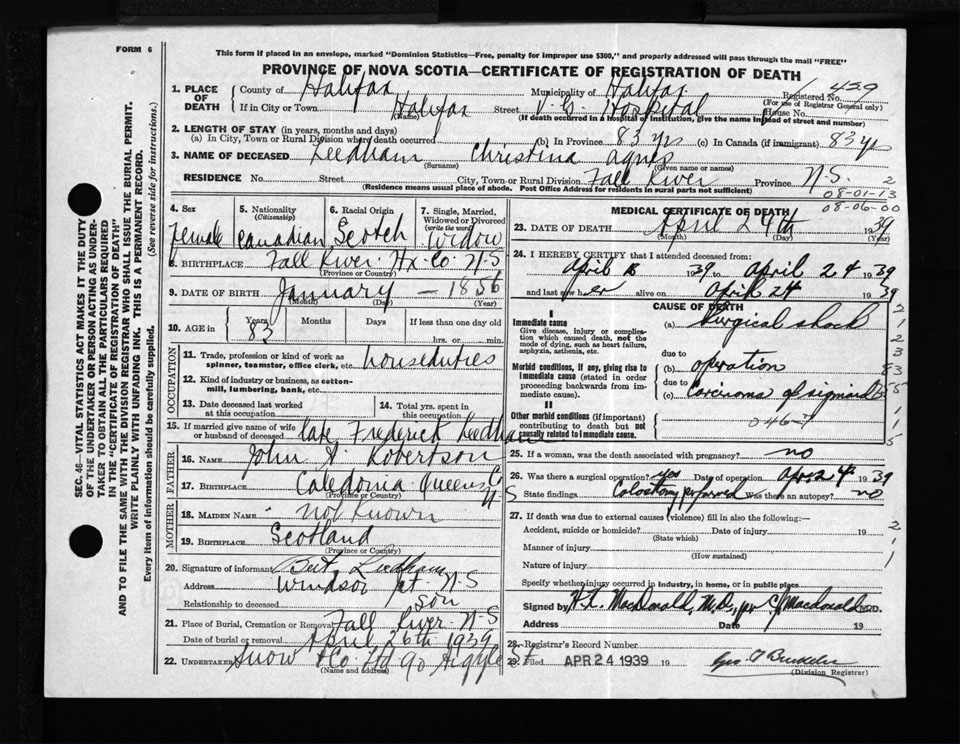 FORM 6
This form if placed in an envelope, marked "Dominion Statistics—Free, penalty for improper use $300," and properly addressed will pass through the mail "FREE"
PROVINCE OF NOVA SCOTIA—CERTIFICATE OF REGISTRATION OF DEATH
SEC. 46—VITAL STATISTICS ACT MAKES IT THE DUTY
OF THE UNDERTAKER OR PERSON ACTING AS UNDER-
TAKER TO OBTAIN ALL THE PARTICULARS REQUIRED
IN THE "CERTIFICATE OF REGISTRATION OF DEATH"
AND TO FILE THE SAME WITH THE DIVISION REGISTRAR WHO SHALL ISSUE THE BURIAL PERMIT.
WRITE PLAINLY WITH UNFADING INK. THIS IS A PERMANENT RECORD.
Every item of information should be carefully supplied. (See reverse side for instructions.)
1. PLACE OF DEATH County of Halifax Municipality of Halifax Registered No. 459
(For use of Registrar General only)
If in City or Town Halifax Street V.G. Hospital House No.
(Name) (If death occurred in a hospital or institution, give the name instead of street and number)
2. LENGTH OF STAY (in years, months and days)
(a) In City, Town or Rural Division where death occurred (b) In Province 83 yrs (c) In Canada (if immigrant) 83 yrs
3. NAME OF DECEASED Leedham Christina Agnes
(Surname) (Given name or names)
RESIDENCE No. Street City, Town or Rural Division Fall River Province N.S. 2
(Residence means usual place of abode. Post Office Address for residents in rural parts not sufficient)
08-01-13
08-06-00
4. Sex Female
5. Nationality (Citizenship) Canadian
6. Racial Origin Scotch
7. Single, Married, Widowed or Divorced (write the word) Widow
8. BIRTHPLACE Fall River Hx. Co. N.S
(Province or Country)
9. DATE OF BIRTH January — 1856
(Month) (Day)
10. AGE in Years 83 Months Days If less than one day old hrs. or min.
OCCUPATION
11. Trade, profession or kind of work as spinner, teamster, office clerk, etc. houseduties
12. Kind of industry or business, as cotton-mill, lumbering, bank, etc.
13. Date deceased last worked at this occupation
14. Total yrs. spent in this occupation
15. If married give name of wife or husband of deceased late Frederick Leedham
FATHER
16. NAME John A. Robertson
17. BIRTHPLACE Caledonia Queens Co N S
(Province or Country)
MOTHER
18. MAIDEN NAME Not Known
19. BIRTHPLACE Scotland
(Province or Country)
20. Signature of informant Bert Leedham
Address Windsor Jct. N-S
Relationship to deceased son
21. Place of Burial, Cremation or Removal Fall River N-S
Date of burial or removal April 26th 1939
22. Undertaker Snow & Co. Ltd 90 Argyle St
(Name and address)
MEDICAL CERTIFICATE OF DEATH
23. DATE OF DEATH April 24th 1939
(Month) (Day) (Year)
24. I HEREBY CERTIFY that I attended deceased from:
April 1939 to April 24 1939
and last saw her alive on April 24 1939
CAUSE OF DEATH
I
Immediate cause
Give disease, injury or complication which caused death, not the mode of dying, such as heart failure, asphyxia, asthenia, etc.
(a) Surgical shock
due to
Morbid conditions, if any, giving rise to immediate cause (stated in order proceeding backwards from immediate cause)
(b) operation
due to
(c) Carcinoma of sigmoid
II
Other morbid conditions (if important) contributing to death but not causally related to immediate cause.
046-7
2
1
2
3
83
55
1
1
5
25. If a woman, was the death associated with pregnancy? no
26. Was there a surgical operation? yes Date of operation Apr. 24 1939
State findings Colostomy performed Was there an autopsy? no
27. If death was due to external causes (violence) fill in also the following:—
Accident, suicide or homicide? Date of injury 19
(State which)
Manner of injury
(How sustained)
Nature of injury
2
1
1
Specify whether injury occurred in industry, in home, or in public place
Signed by H.L. MacDonald, M.D., per C.J. Macdonald M.D.
Address Date 19
28. Registrar's Record Number
29. Filed APR 24 1939 19
(Division Registrar)